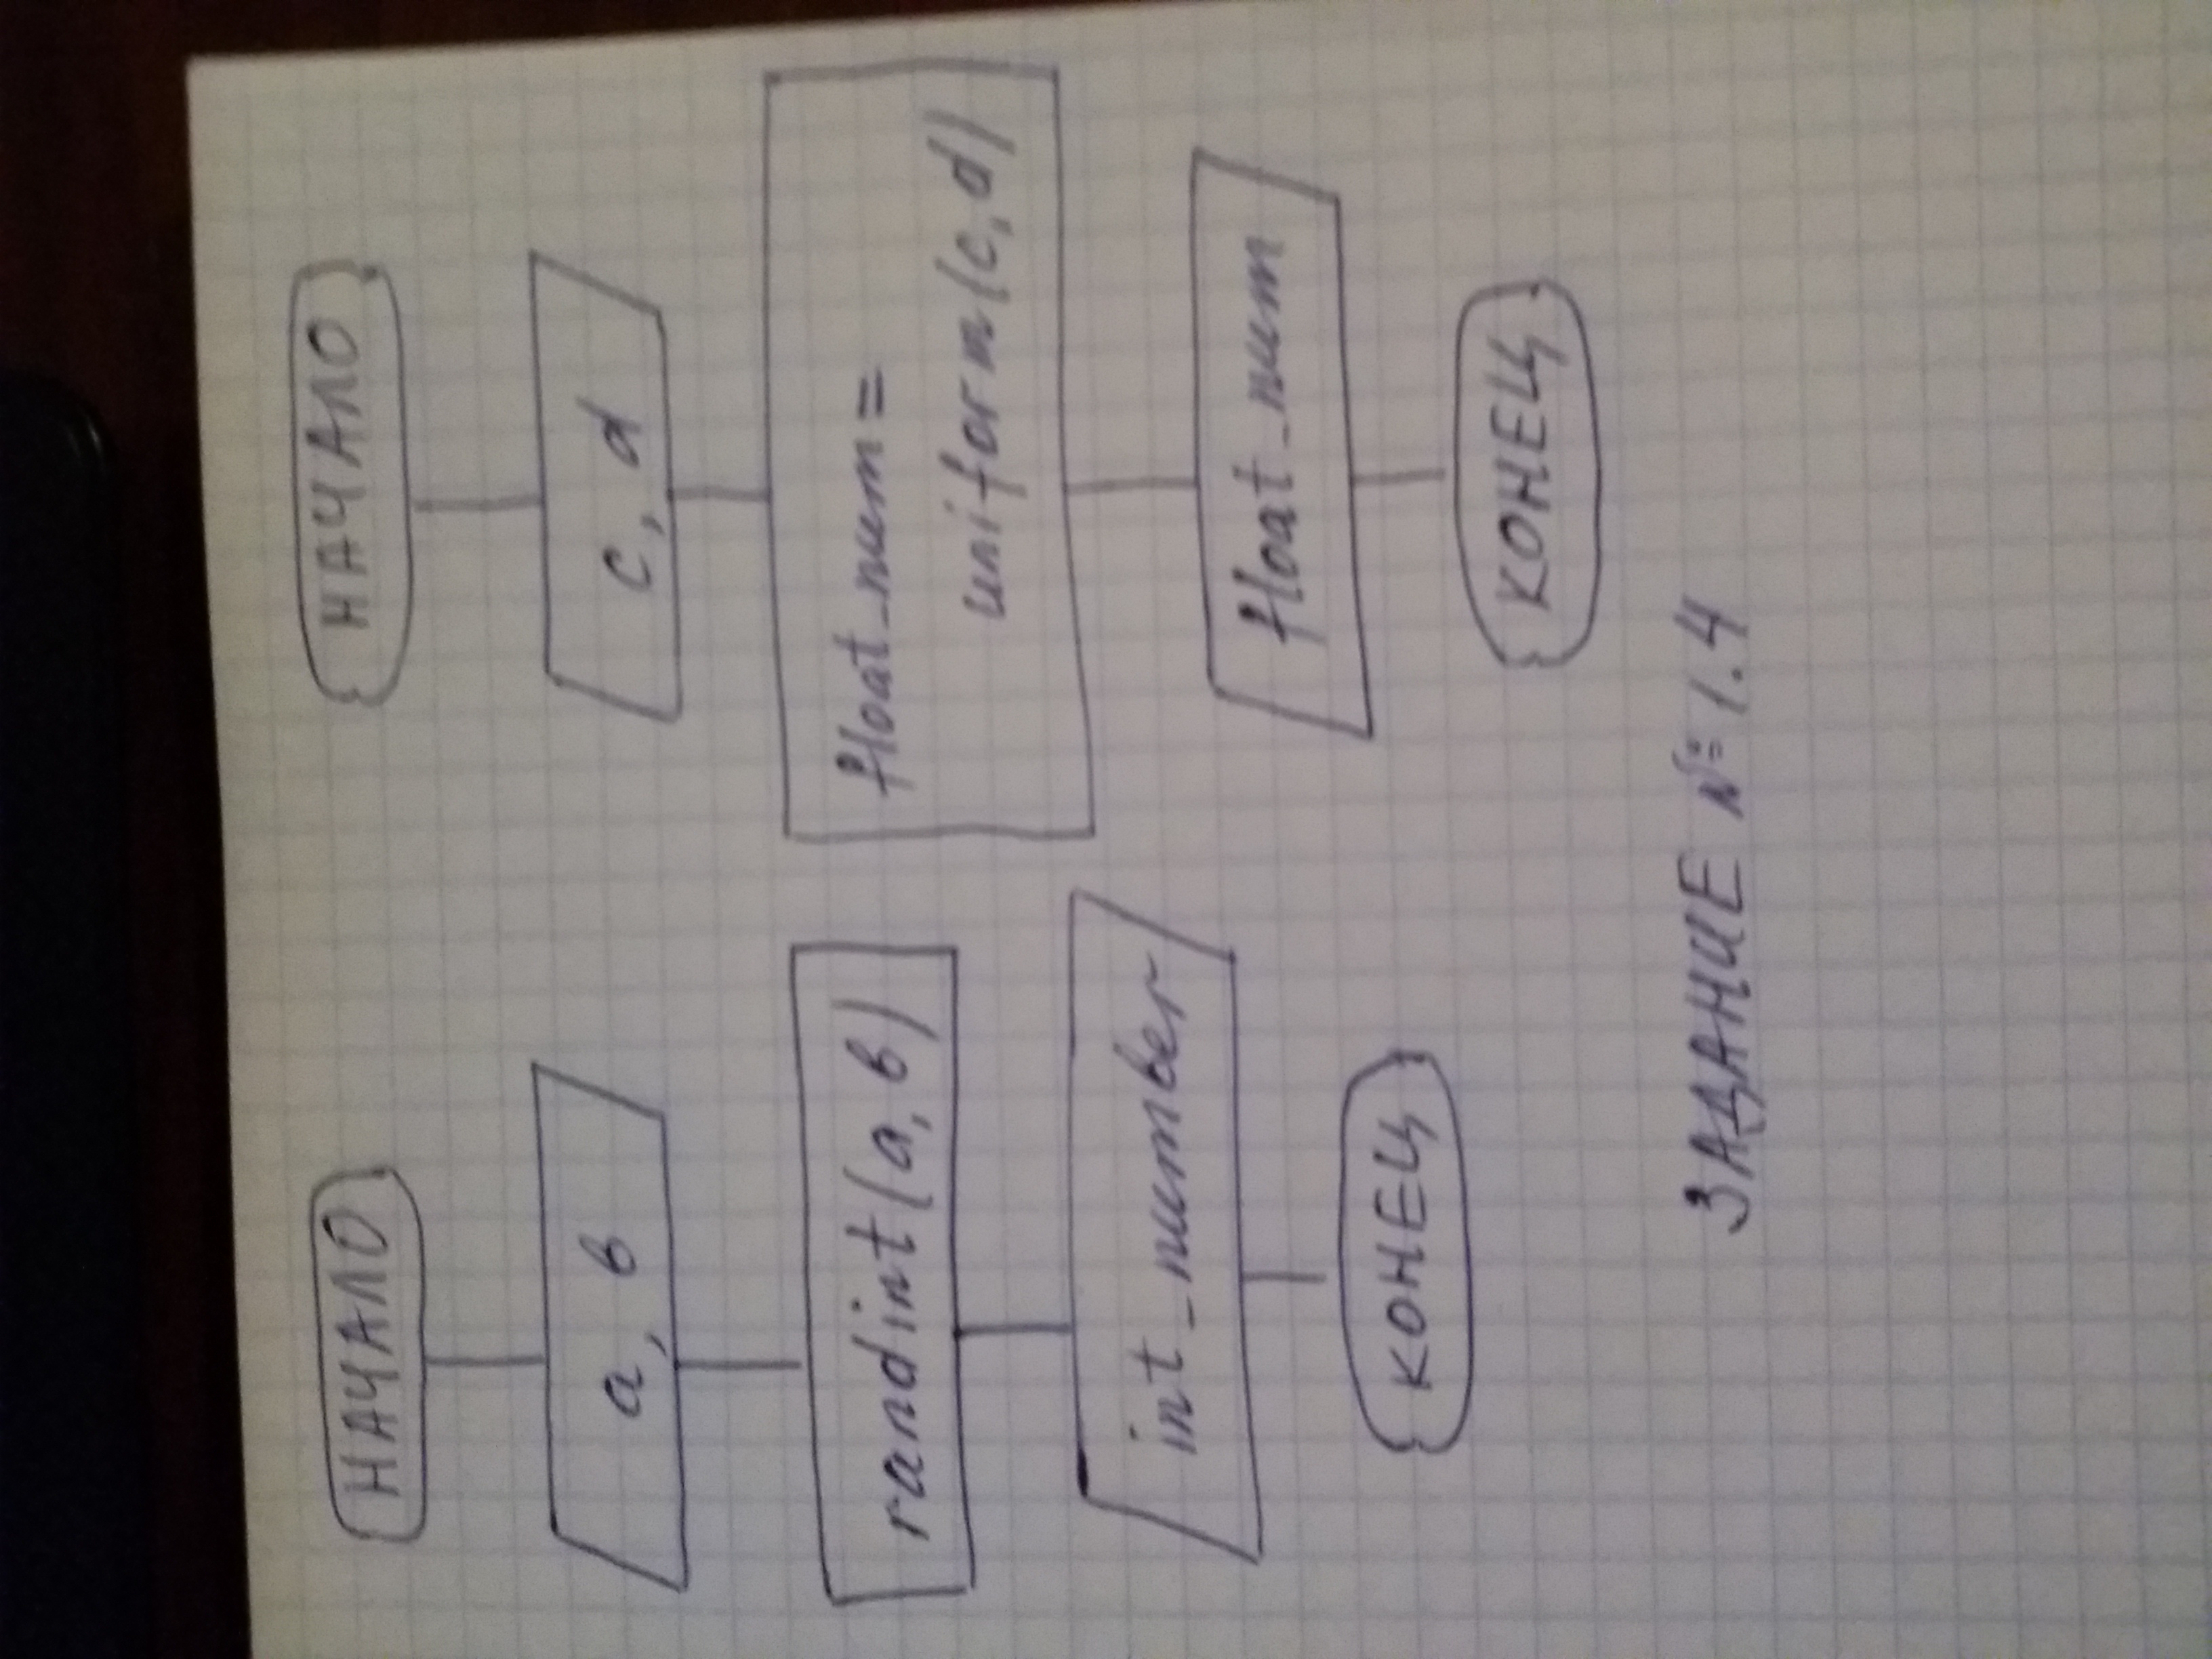 НАЧАЛО
a, в
randint(a, в)
int_number
КОНЕЦ
НАЧАЛО
c, d
float_num =
uniform(c, d)
float_num
КОНЕЦ
ЗАДАНИЕ № 1.4